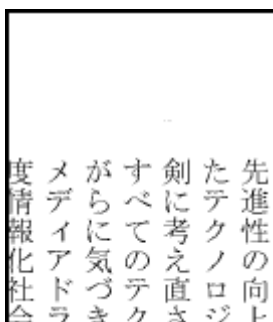 先進性の向上
たテクノロジ
剣に考え直さ
すべてのテク
がらに気づき
メディアドラ
度情報化社会